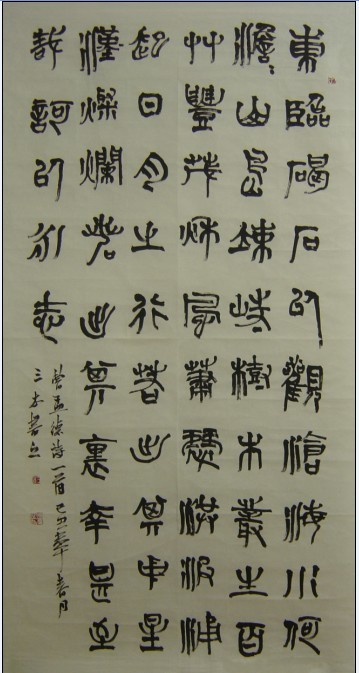 東臨碣石以觀滄海水何
澹澹山島竦峙樹木叢生百
艸豐茂秋風蕭瑟洪波湧
起日月之行若出其中星
漢燦爛若出其裏幸甚至
哉謌以永志
曹孟德詩一首年春月
書之